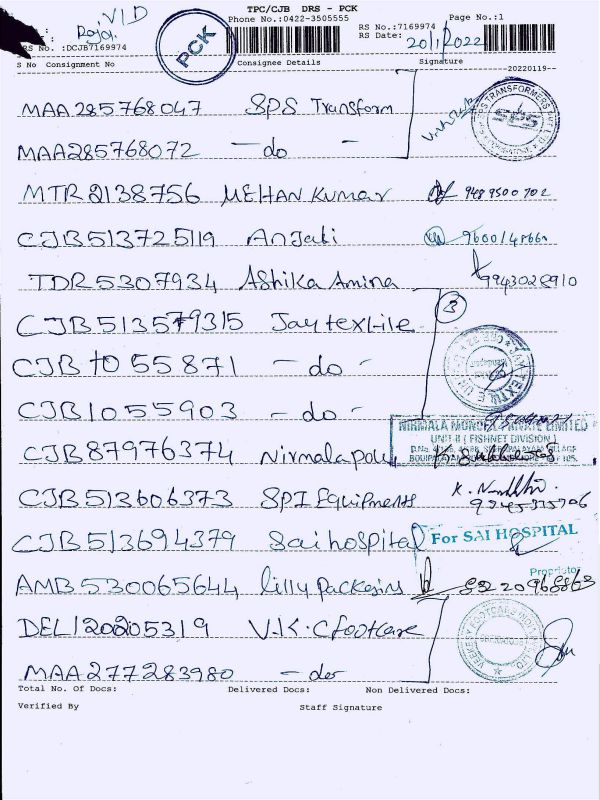 TPC/CJB DRS - PCK
VID
Phone No.:0422-3505555
RS No.:7169974
Page No.:1
RS No. :DCJB7169974
PCK
RS Date: 20/1/2022
S No Consignment No Consignee Details Signature
20220119
MAA285768047 SPS Transform
MAA285768072 - do -
SPS
MTR2138756 MEHAN Kumar 9489500702
CJB513725119 Anjali
TDR5307934 Ashika Amina 9943028910
CJB513579315 Jay textile 3
CJB1055871 - do -
CJB1055903 - do -
NIRMALA PRIVATE LIMITED
UNIT-II ( FISHNET DIVISION )
CJB87976374 Nirmala poly
CJB513606373 SPI Equipments K.
CJB513694379 Sai hospital For SAI HOSPITAL
Proprietor
AMB530065644 Lilly Packesins
DEL120205319 V.K.C footcare
MAA277283980 - do
Total No. Of Docs: Delivered Docs: Non Delivered Docs:
Verified By Staff Signature